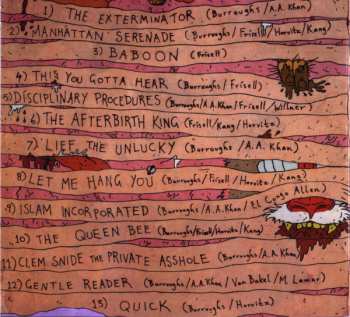 1) THE EXTERMINATOR (Burroughs/A.A. Khan)
2) MANHATTAN SERENADE (Burroughs/Frisell/Horvitz/Kang)
3) BABOON (Frisell)
4) THIS YOU GOTTA HEAR (Burroughs/Frisell)
5) DISCIPLINARY PROCEDURES (Burroughs/A.A. Khan/Frisell/Willner)
6) THE AFTERBIRTH KING (Frisell/Kang/Horvitz)
7) LIEF THE UNLUCKY (Burroughs/A.A. Khan)
8) LET ME HANG YOU (Burroughs/Frisell/Horvitz/Kang)
9) ISLAM INCORPORATED (Burroughs/A.A. Khan/El Congo Allen)
10) THE QUEEN BEE (Burroughs/Frisell/Horvitz/Kang)
11) CLEM SNIDE THE PRIVATE ASSHOLE (Burroughs/A.A. Khan)
12) GENTLE READER (Burroughs/A.A. Khan/Van Bakel/M. Lamar)
13) QUICK (Burroughs/Horvitz)